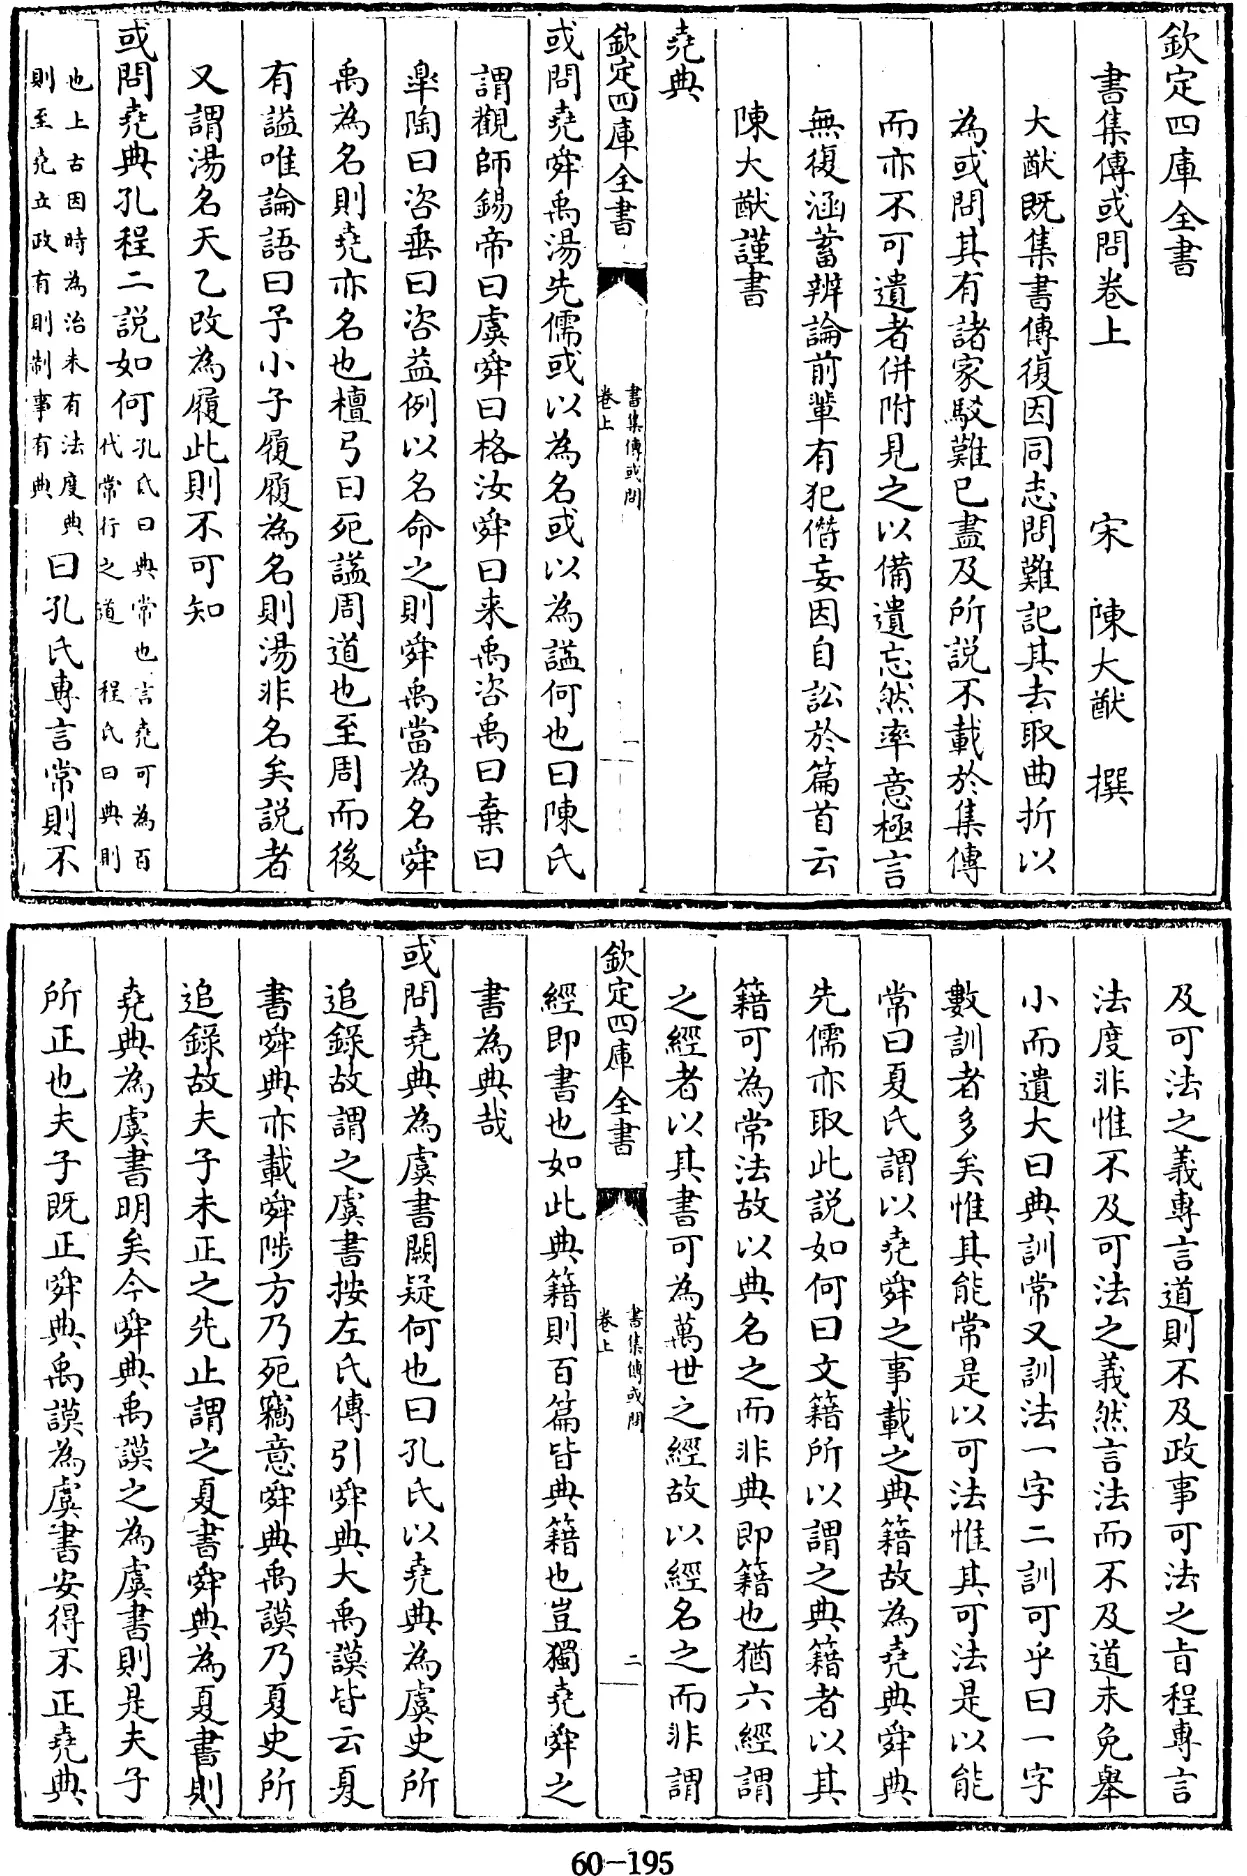 欽定四庫全書
書集傳或問卷上
宋 陳大猷 撰
大猷既集書傳復因同志問難記其去取曲折以
為或問其有諸家駁難已盡及所說不載於集傳
而亦不可遺者併附見之以備遺忘然率意極言
無復涵蓄辨論前輩有犯僭妄因自訟於篇首云
陳大猷謹書
堯典
欽定四庫全書
書集傳或問
卷上
一
或問堯舜禹湯先儒或以為名或以為謚何也曰陳氏
謂觀師錫帝曰虞舜曰格汝舜曰来禹咨禹曰棄曰
臯陶曰咨垂曰咨益例以名命之則舜禹當為名舜
禹為名則堯亦名也檀弓曰死謚周道也至周而後
有謚唯論語曰予小子履履為名則湯非名矣說者
又謂湯名天乙改為履此則不可知
或問堯典孔程二說如何
孔氏曰典常也言堯可為百
代常行之道 程氏曰典則
也上古因時為治未有法度典
則至堯立政有則制事有典
曰孔氏專言常則不
及可法之義專言道則不及政事可法之旨程專言
法度非惟不及可法之義然言法而不及道未免舉
小而遺大曰典訓常又訓法一字二訓可乎曰一字
數訓者多矣惟其能常是以可法惟其可法是以能
常曰夏氏謂以堯舜之事載之典籍故為堯典舜典
先儒亦取此說如何曰文籍所以謂之典籍者以其
籍可為常法故以典名之而非典即籍也猶六經謂
之經者以其書可為萬世之經故以經名之而非謂
欽定四庫全書
書集傳或問
卷上
二
經即書也如此典籍則百篇皆典籍也豈獨堯舜之
書為典哉
或問堯典為虞書闕疑何也曰孔氏以堯典為虞史所
追錄故謂之虞書按左氏傳引舜典大禹謨皆云夏
書舜典亦載舜陟方乃死竊意舜典禹謨乃夏史所
追錄故夫子未正之先止謂之夏書舜典為夏書則
堯典為虞書明矣今舜典禹謨之為虞書則是夫子
所正也夫子既正舜典禹謨為虞書安得不正堯典
60-195